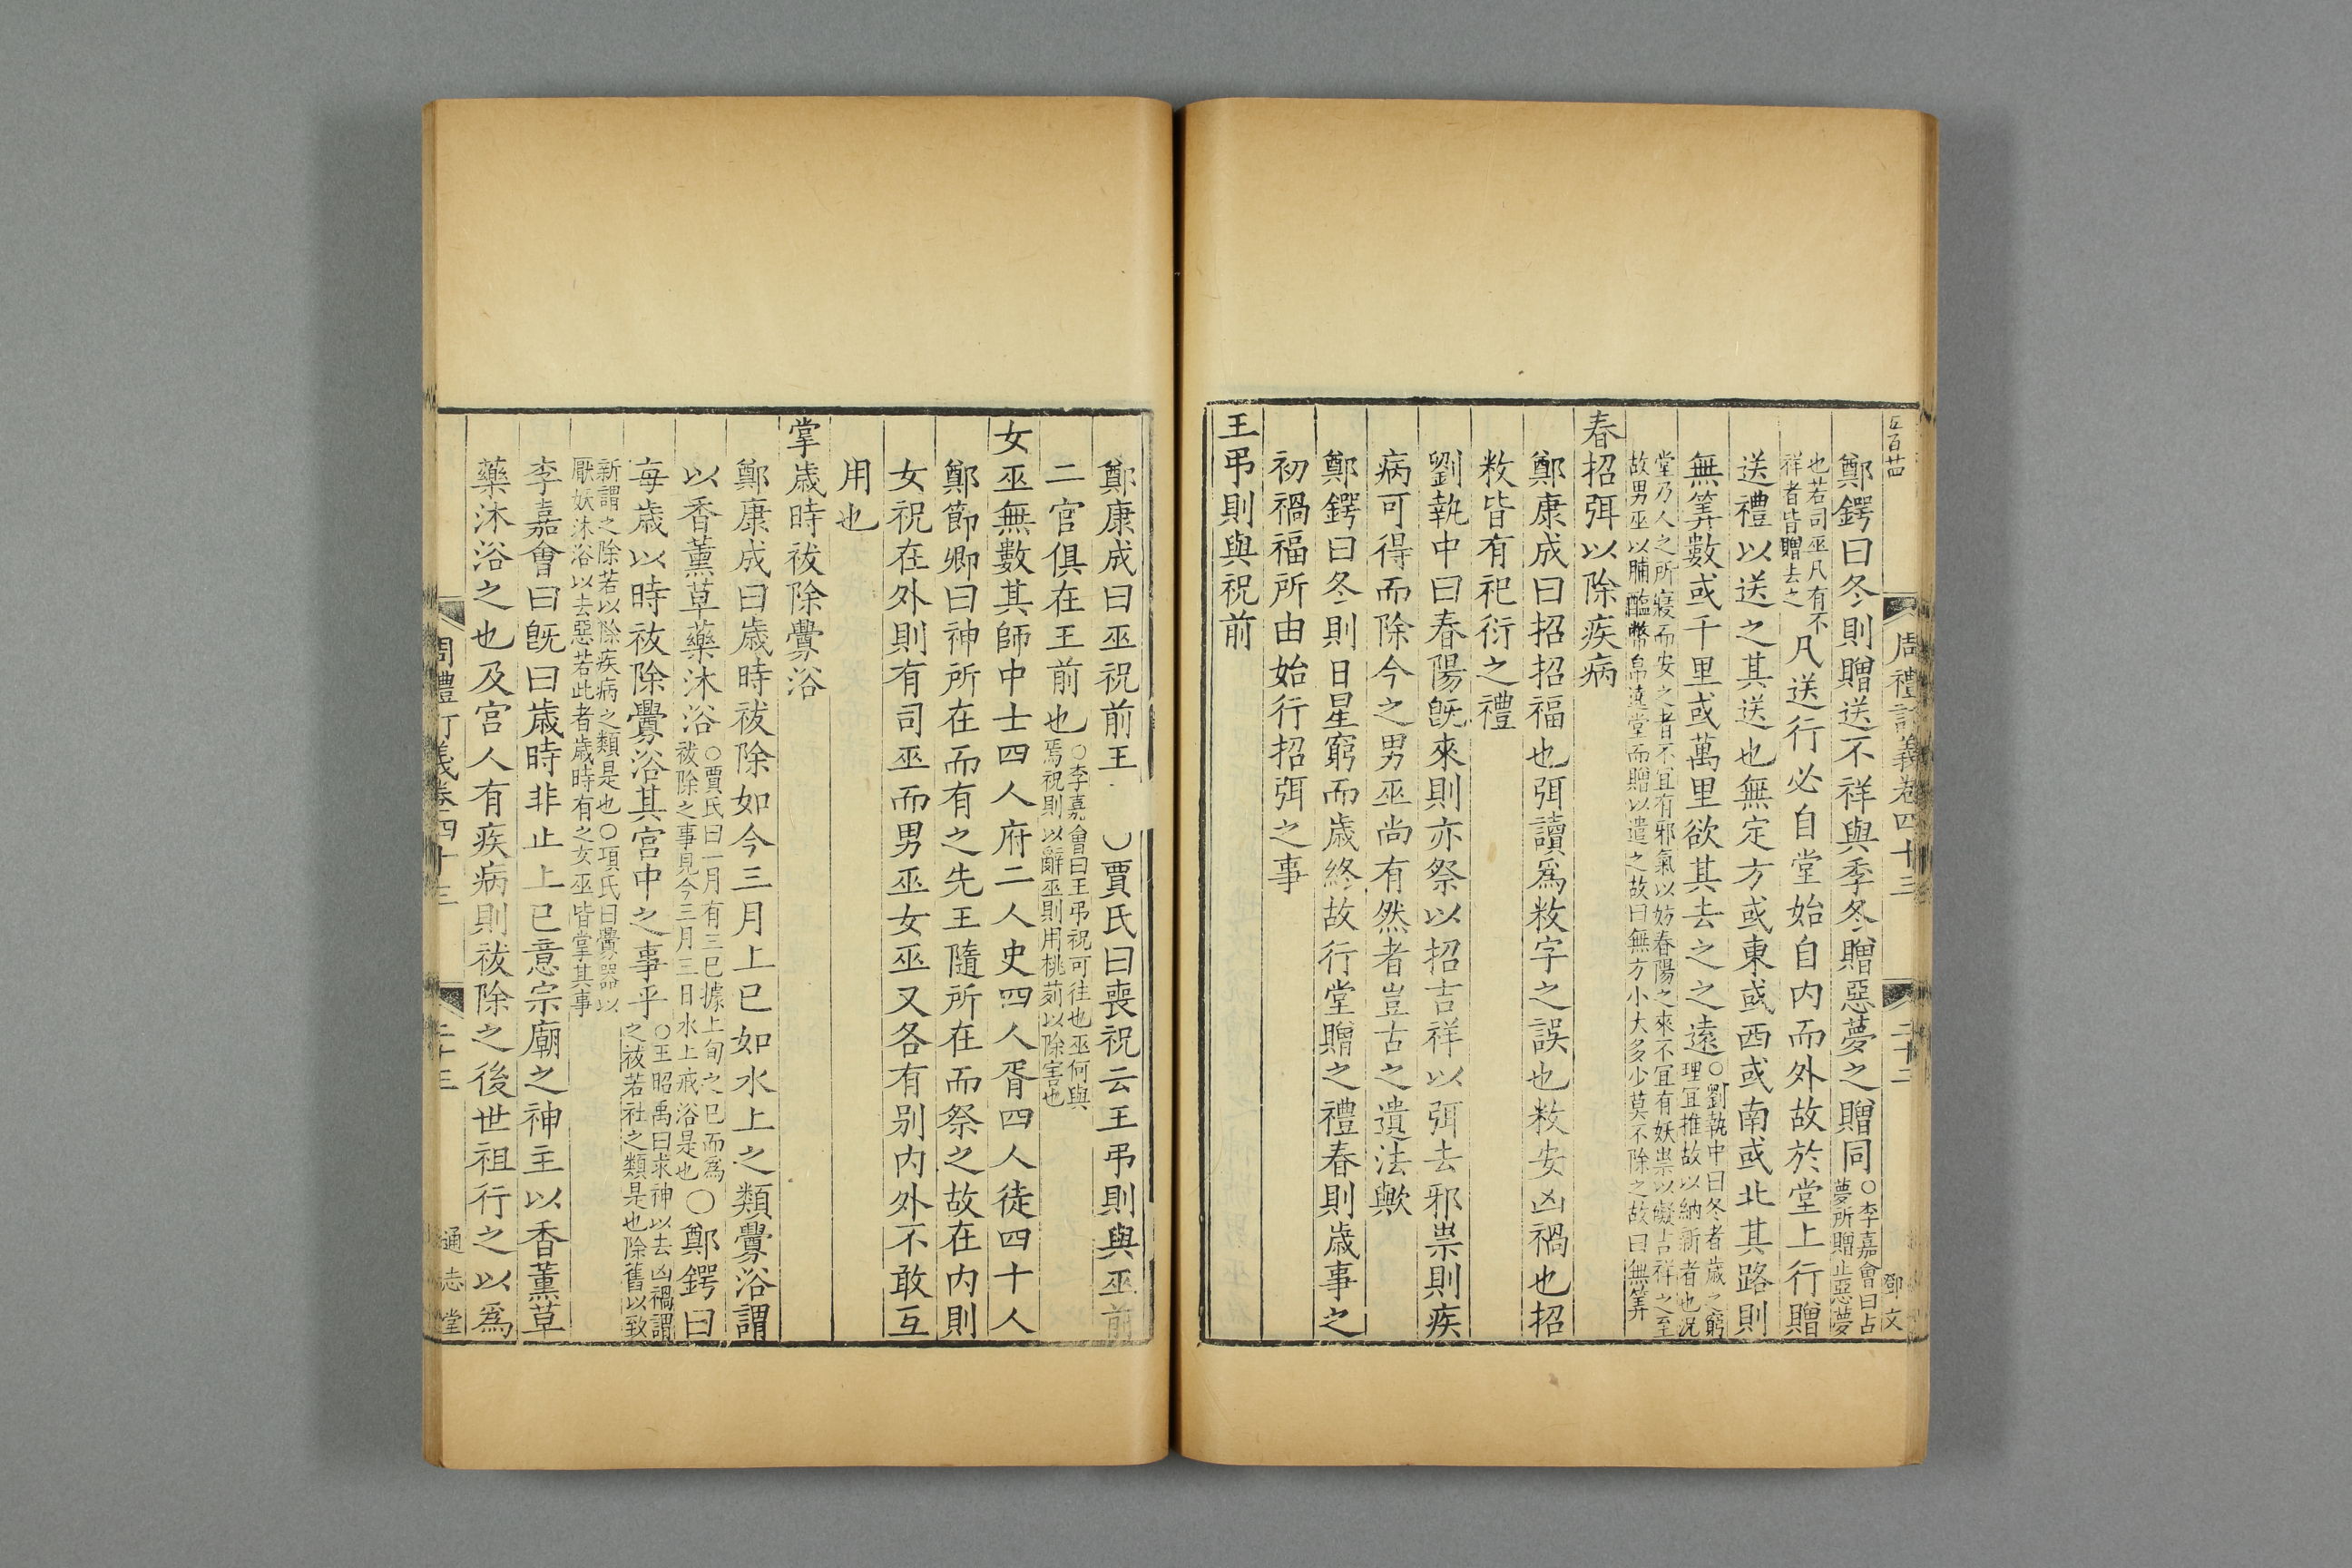 周禮訂義卷四十三
二十二
鄧文
鄭鍔曰冬則贈送不祥與季冬贈惡夢之贈同○李嘉會曰占夢所贈止惡夢
也若司巫凡有不祥者皆贈去之凡送行必自堂始自内而外故於堂上行贈
送禮以送之其送也無定方或東或西或南或北其路則
無筭數或千里或萬里欲其去之之遠○劉執中曰冬者歲之窮理宜推故以納新者也況
堂乃人之所寢而安之者不宜有邪氣以妨春陽之來不宜有妖祟以礙吉祥之至故男巫以脯醢幣帛遶堂而贈以遣之故曰無方小大多少莫不除之故曰無筭
春招弭以除疾病
鄭康成曰招招福也弭讀爲敉字之誤也敉安凶禍也招
敉皆有祀衍之禮
劉執中曰春陽旣來則亦祭以招吉祥以弭去邪祟則疾
病可得而除今之男巫尚有然者豈古之遺法歟
鄭鍔曰冬則日星窮而歲終故行堂贈之禮春則歲事之
初禍福所由始行招弭之事
王弔則與祝前
鄭康成曰巫祝前王 ○賈氏曰喪祝云王弔則與巫前
二官俱在王前也○李嘉會曰王弔祝可往也巫何與焉祝則以辭巫則用桃茢以除害也
女巫無數其師中士四人府二人史四人胥四人徒四十人
鄭節卿曰神所在而有之先王隨所在而祭之故在内則
女祝在外則有司巫而男巫女巫又各有别内外不敢互
用也
掌歲時祓除釁浴
鄭康成曰歲時祓除如今三月上巳如水上之類釁浴謂
以香薰草藥沐浴○賈氏曰一月有三巳據上旬之巳而爲祓除之事見今三月三日水上戒浴是也○鄭鍔曰
每歲以時祓除釁浴其宮中之事乎○王昭禹曰求神以去凶禍謂之祓若社之類是也除舊以致
新謂之除若以除疾病之類是也○項氏曰釁器以厭妖沐浴以去惡若此者歲時有之女巫皆掌其事
李嘉會曰旣曰歲時非止上巳意宗廟之神主以香薰草
藥沐浴之也及宮人有疾病則祓除之後世祖行之以爲
周禮訂義卷四十三
二十三
通志堂